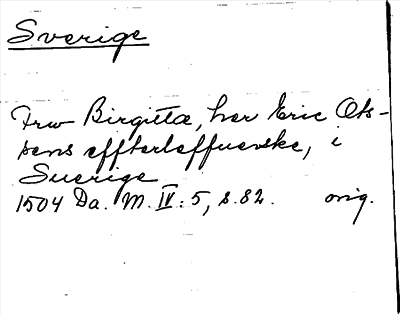 Sverige
Frw Birgitta, her Eric Ots-
sens effterleffuerske, i
Suerige
1504 Da. M. IV: 5, s. 82. orig.